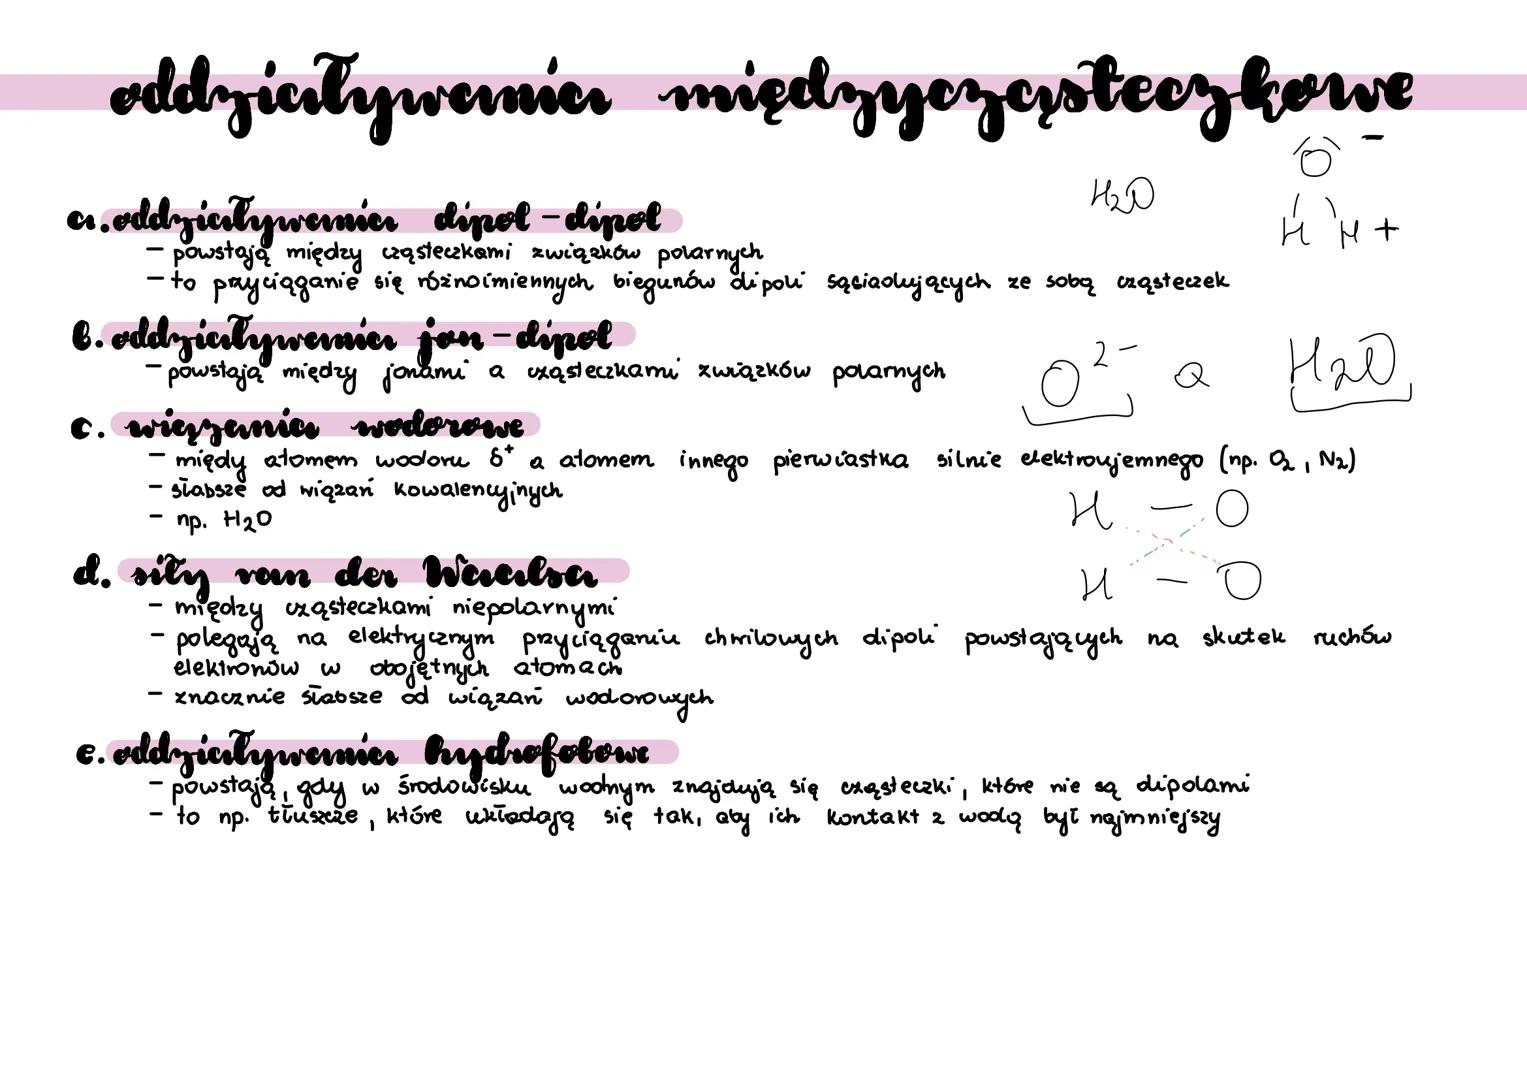 oddziaływania międzycząsteczkowe
H₂O
O -
H H +
a. oddziaływania dipol - dipol
- powstają między cząsteczkami związków polarnych
- to przyciąganie się różnoimiennych biegunów dipoli sąsiadujących ze sobą cząsteczek
b. oddziaływania jon - dipol
- powstają między jonami a cząsteczkami związków polarnych
O²⁻ a H₂O
c. wiązania wodorowe
- międy atomem wodoru δ⁺ a atomem innego pierwiastka silnie elektroujemnego (np. O₂, N₂)
- słabsze od wiązań kowalencyjnych
- np. H₂O
H - O
H - O
d. siły van der Waalsa
- między cząsteczkami niepolarnymi
- polegają na elektrycznym przyciąganiu chwilowych dipoli powstających na skutek ruchów
elektronów w obojętnych atomach
- znacznie słabsze od wiązań wodorowych
e. oddziaływania hydrofobowe
- powstają, gdy w środowisku wodnym znajdują się cząsteczki, które nie są dipolami
- to np. tłuszcze, które układają się tak, aby ich kontakt z wodą był najmniejszy